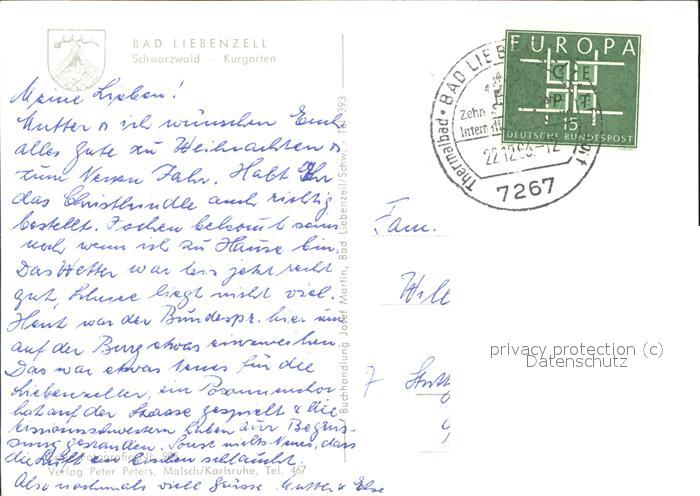 BAD LIEBENZELL
Schwarzwald - Kurgarten
Meine Lieben!
Mutter u ich wünschen Euch
alles Gute zu Weihnachten u
zum Neuen Jahr. Habt Ihr
das Christkindle auch richtig
bestellt. Jochen bekommt seins
noch wenn ich zu Hause bin.
Das Wetter war bis jetzt recht
gut, Schnee liegt nicht viel.
Heut war der Bundespr. hier um
auf der Burg etwas einzuweihen.
Das war etwas Neues für die
Liebenzeller, ein Posaunenchor
hat auf der Strasse gespielt & die
Missionsschwestern haben zur Begrüs-
sung gestanden. Sonst nichts Neues, dass
die Luft ein bischen schlaucht.
Verlag Peter Peters, Malsch/Karlsruhe, Tel. 467
Also nochmals viele Grüsse Mutter & Else
Buchhandlung Josef Martin, Bad Liebenzell/Schw.
EUROPA
CE
PT
15
DEUTSCHE BUNDESPOST
Thermalbad · BAD LIEBE
Zehn
Intern
22.12.63-12
7267
Fam.
Wil
7 Stuttg
privacy protection (c)
Datenschutz